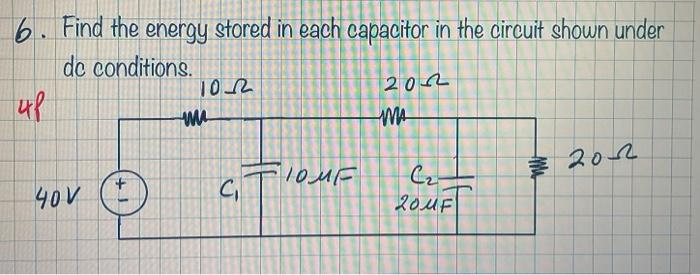 6. Find the energy stored in each capacitor in the circuit shown under
dc conditions.
10Ω
20Ω
4p
40V
+
-
C₁
10μF
C₂
20μF
20Ω